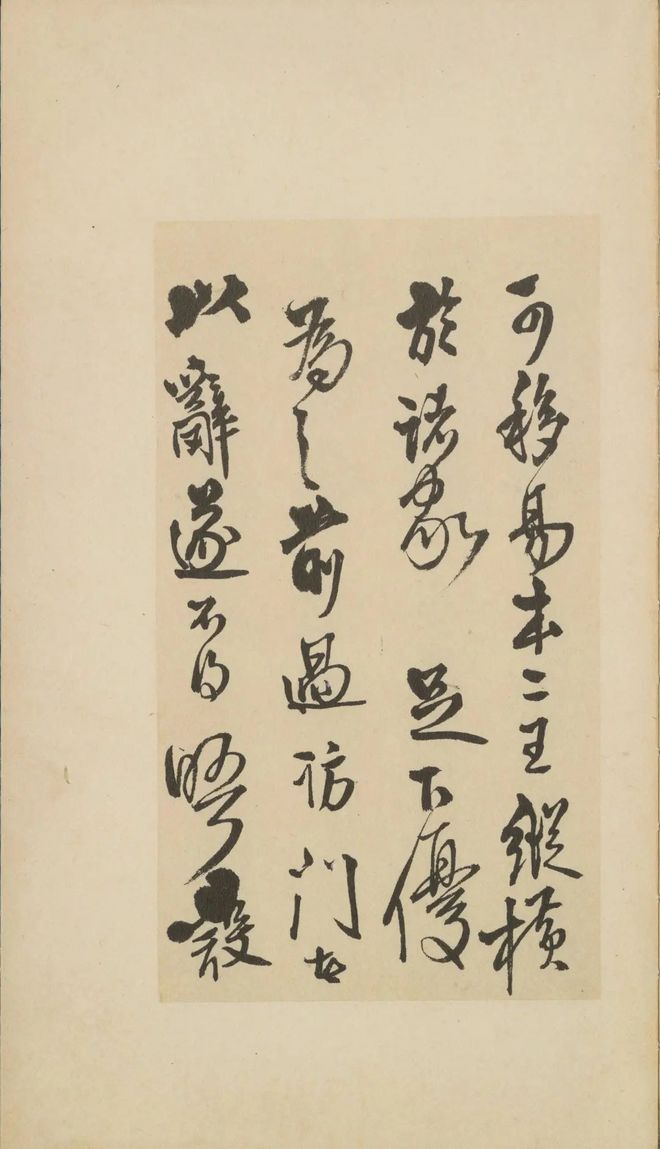 可移易本二王縱橫
於諸家足下優
為之前過訪門者
以辭遂不得晤設